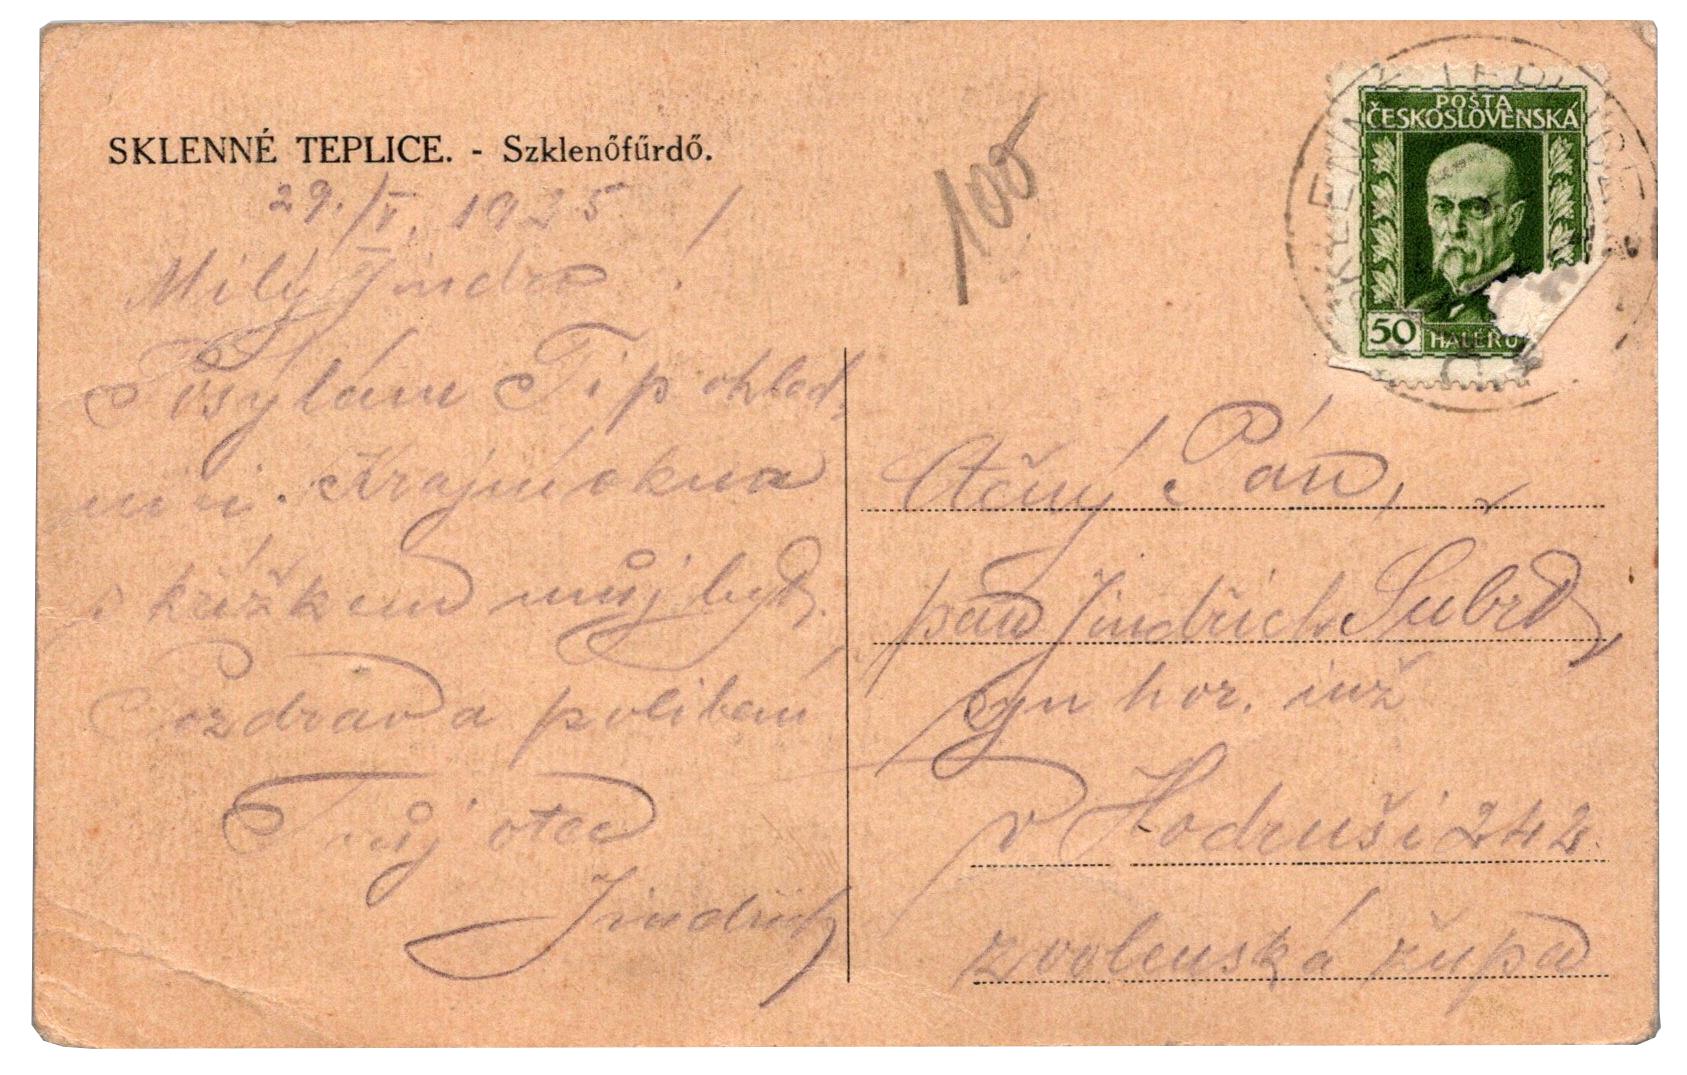 SKLENNÉ TEPLICE. - Szklenőfűrdő.
29./V. 1925
Milý Jindro!
Posýlám Ti pohled,
nici. Krajní okna
s křížkem můj byt.
Pozdrav a políbení
Tvůj otec
Jindřich
100
POŠTA
ČESKOSLOVENSKÁ
50 HALÉŘŮ
SKLENNÉ TEPLICE
Ctěný Pán,
pan Jindřich Šubrt,
syn hor. inž
v Hodruši 242.
zvolenská župa